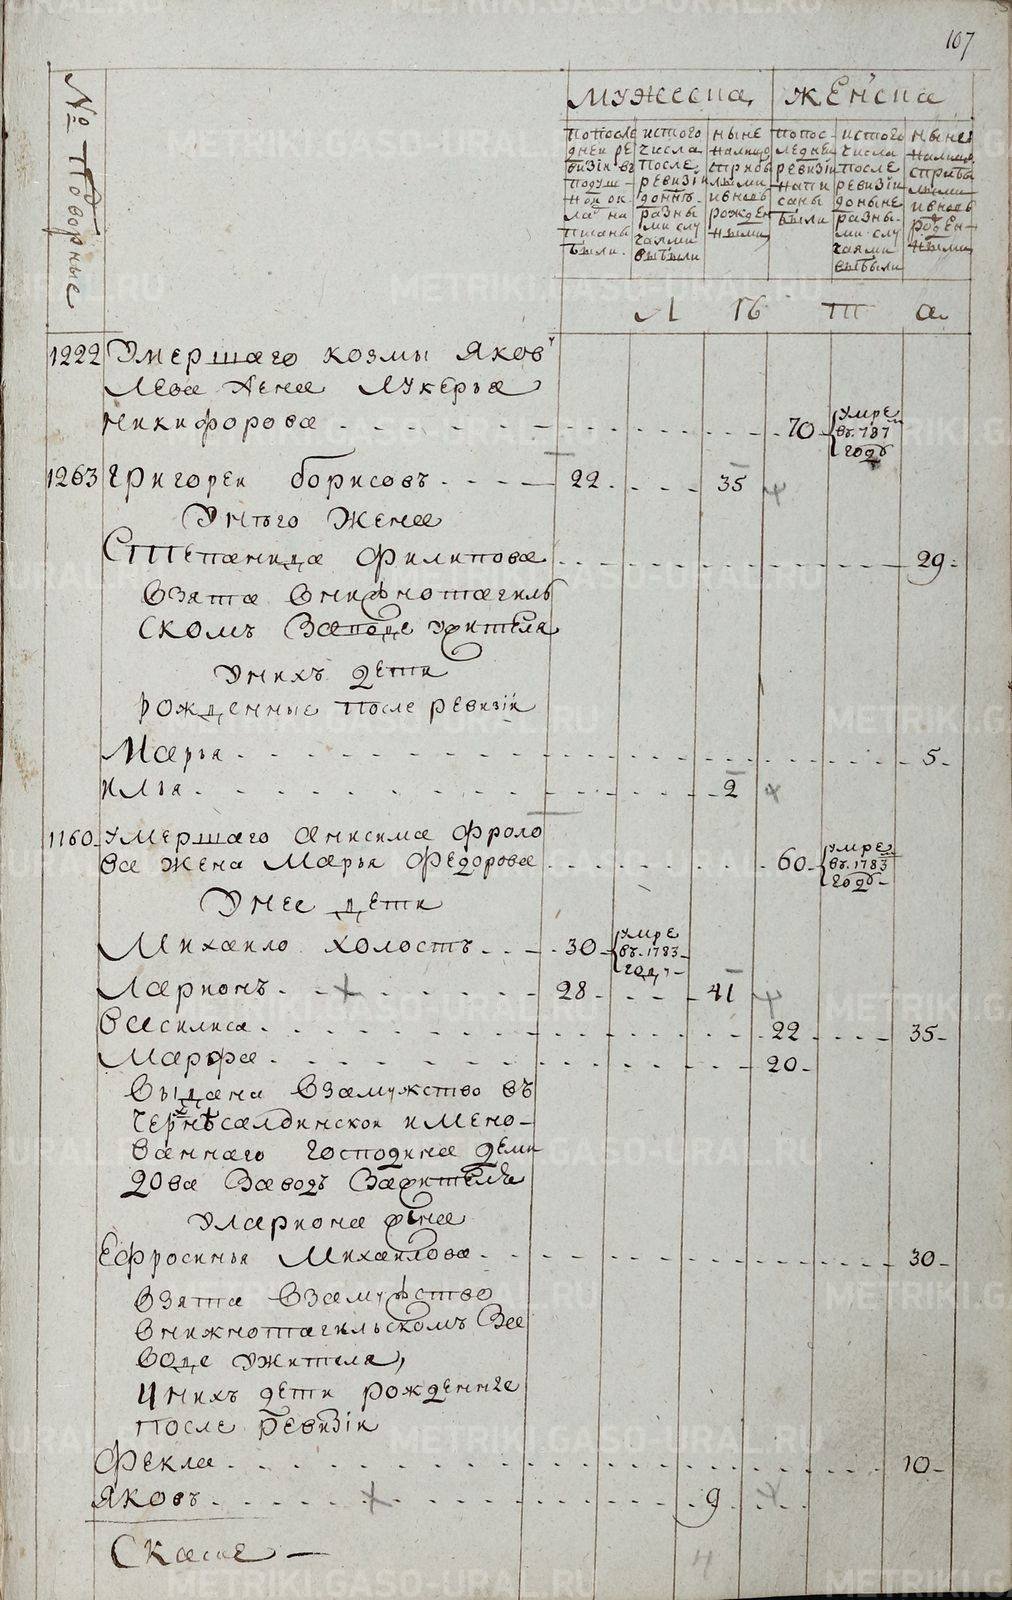 107
№ Подворные
мужеска
женска
попосле
дней ре
визiи въ
подуш-
ной ок
ладъ на
писаны
были.
истого
числа
после
ревизiи
донынѣ
разны
ми слу
чаями
выбыли
ныне
налицо
сприбы
лыми
ивновь
рожден
ными
попос-
ледней
ревизiи
напи
саны
были
истого
числа
после
ревизiи
доныне
разны-
ми слу
чаями
выбыли
ныне
налицо
сприбы
лыми
ивновь
рожден-
ными
Л ѣ т а
1222 Умершаго козмы яков
лева жена лукерья
никифорова 70 умре
въ 787
годꙋ
1263 григореи борисовъ 22 35
Унѣго жена
Степанида филипова 29
взята внижнотагиль
скомъ Заводе ужителя
Унихъ дети
рожденные после ревизiи
Марья 5
илья 2
1160 умершаго анисима фроло
ва жена Марья федорова 60 умре
въ 1783
годꙋ
Унее дети
Михаило холостъ 30 умре
въ 1783
годꙋ
Ларионъ 28 41
василиса 22 35
Марфа 20
выдана взамужство въ
чернѣсалдинскои имено-
ваннаго господина деми
дова Заводъ Зажителя
уЛариона жена
Ефросинья Михаилова 30
взята взамужство
внижнотагильскомъ За
воде ужителя,
Унихъ дети рожденные
после ревизiи
Фекла 10
яковъ 9
4
METRIKI.GASO-URAL.RU